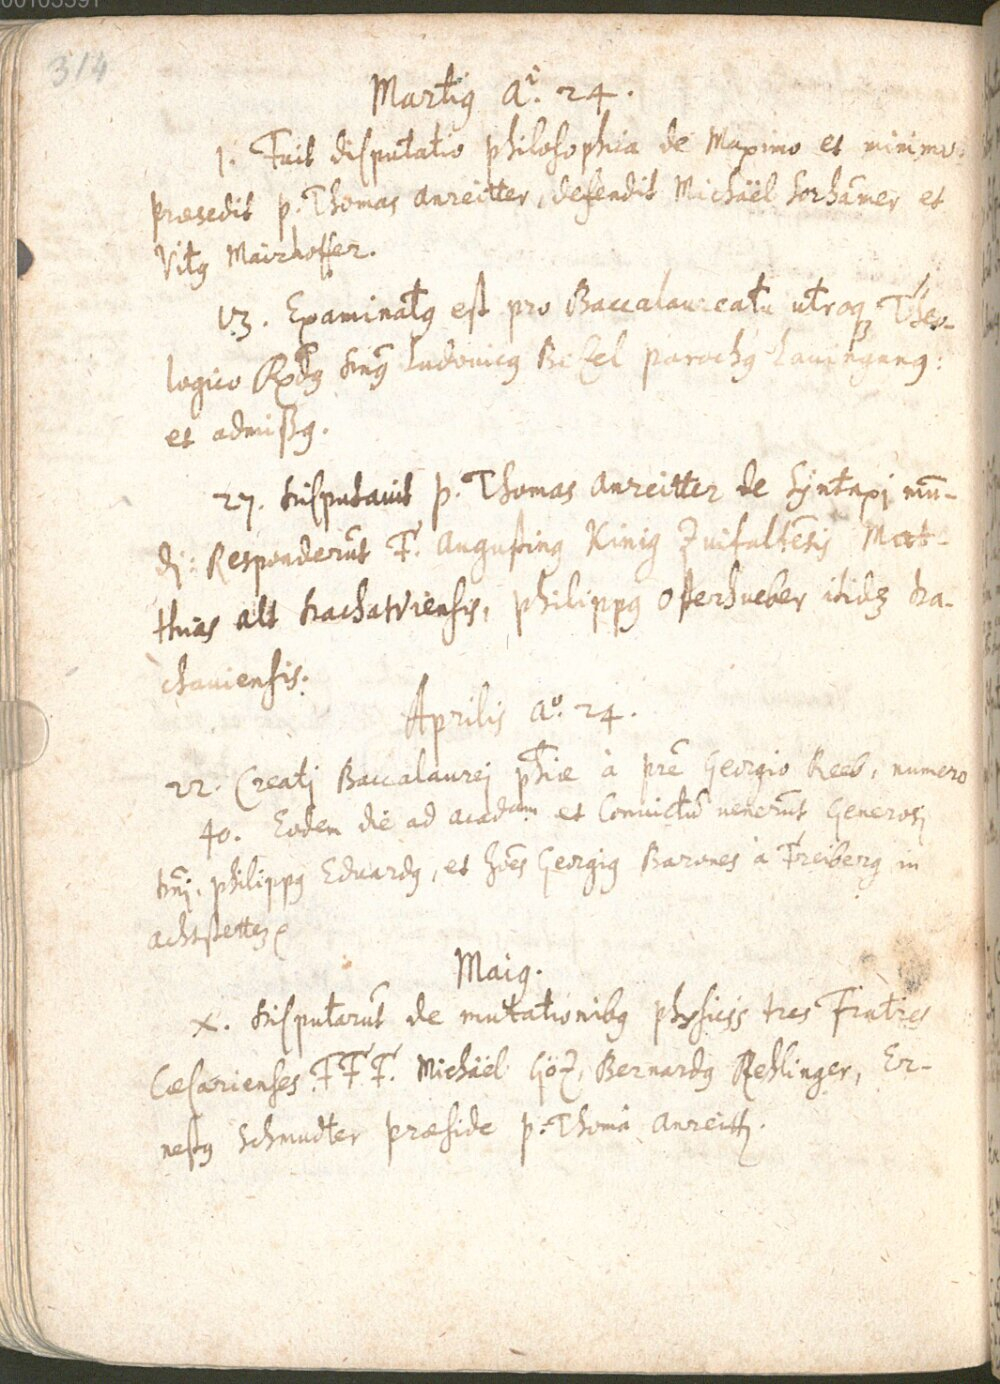 00103391
314
Martiꝰ Aⁱ. 24.
1. Fuit disputatio philosophia de Maximo et minimo.
præsedit p. Thomas Anreitter, defendit Michäel et
Vitꝰ Mairhoffer.
13. Examinatꝰ est pro Baccalaureatu utroqꝫ Theo-
logico Rꝰdꝰ Dn̄ꝰ Ludovicꝰ parochꝰ Lauinganꝰ:
et admißꝰ.
27. Disputauit p. Thomas Anreitter de Syntaxi mū-
di: Responderūt F. Augustinꝰ Kinig Zuifaltēsis Mat-
thias alt Dachauiensis, Philippꝰ Osterhueber itidꝫ Da-
chauiensis.
Aprilis Aº. 24.
22. Creati Baccalaurei phiæ à prē Georgio Reeb, numero
40. Eodem die ad acadam et Conuictū uenerūt Generosi
Dn̄i. Philippꝰ Eduardꝰ, et Joēs Georgiꝰ Barones à Freiberg in
achstetten
Maiꝰ.
x. Disputarūt de mutationibꝰ physicis tres Fratres
Cæsarienses FFF. Michäel Göz, Bernardꝰ Rehlinger, Er-
nestꝰ Schmudter præside p. Thoma Anreitt.